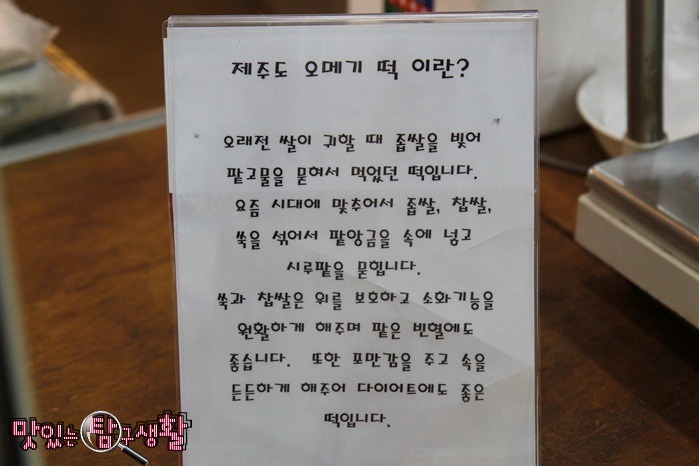 제주도 오메기 떡 이란?
오래전 쌀이 귀할 때 좁쌀을 빚어
팥고물을 묻혀서 먹었던 떡입니다.
요즘 시대에 맞추어서 좁쌀, 찹쌀,
쑥을 섞어서 팥앙금을 속에 넣고
시루팥을 묻힙니다.
쑥과 찹쌀은 위를 보호하고 소화기능을
원활하게 해주며 팥은 빈혈에도
좋습니다. 또한 포만감을 주고 속을
든든하게 해주어 다이어트에도 좋은
떡입니다.
맛있는 탐구생활